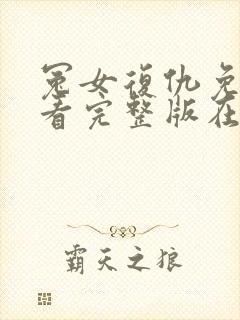 冤女復仇免
看完整版在
霸天之狼